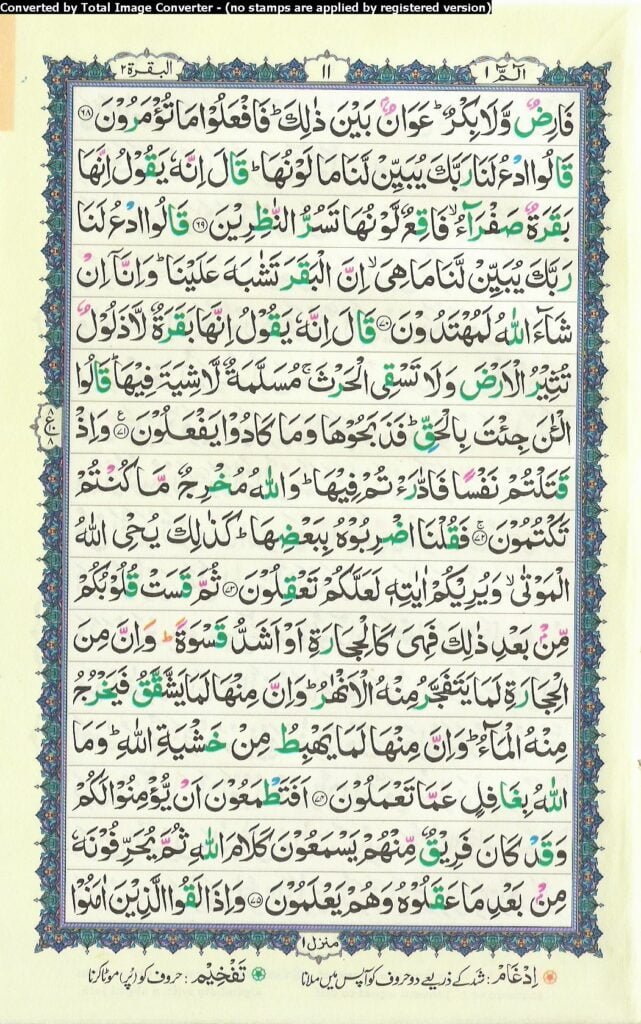 Converted by Total Image Converter - (no stamps are applied by registered version)
الٓمّٓ ١
١١
البقرة ٢
فَارِضٌ وَّلَا بِكْرٌ ؕ عَوَانٌۢ بَيْنَ ذٰلِكَ ؕ فَافْعَلُوْا مَا تُؤْمَرُوْنَ ﴿۶۸﴾
قَالُوا ادْعُ لَنَا رَبَّكَ يُبَيِّنْ لَّنَا مَا لَوْنُهَا ؕ قَالَ اِنَّهٗ يَقُوْلُ اِنَّهَا
بَقَرَةٌ صَفْرَآءُ ۙ فَاقِعٌ لَّوْنُهَا تَسُرُّ النّٰظِرِيْنَ ﴿۶۹﴾ قَالُوا ادْعُ لَنَا
رَبَّكَ يُبَيِّنْ لَّنَا مَا هِىَ ۙ اِنَّ الْبَقَرَ تَشٰبَهَ عَلَيْنَا ؕ وَاِنَّاۤ اِنْ
شَآءَ اللّٰهُ لَمُهْتَدُوْنَ ﴿۷۰﴾ قَالَ اِنَّهٗ يَقُوْلُ اِنَّهَا بَقَرَةٌ لَّا ذَلُوْلٌ
تُثِيْرُ الْاَرْضَ وَلَا تَسْقِى الْحَرْثَ ۚ مُسَلَّمَةٌ لَّا شِيَةَ فِيْهَا ؕ قَالُوا
الْـٰٔنَ جِئْتَ بِالْحَقِّ ؕ فَذَبَحُوْهَا وَمَا كَادُوْا يَفْعَلُوْنَ ﴿۷۱﴾ ع وَاِذْ
قَتَلْتُمْ نَفْسًا فَادّٰرَءْتُمْ فِيْهَا ؕ وَاللّٰهُ مُخْرِجٌ مَّا كُنْتُمْ
تَكْتُمُوْنَ ﴿۷۲﴾ ۚ فَقُلْنَا اضْرِبُوْهُ بِبَعْضِهَا ؕ كَذٰلِكَ يُحْىِ اللّٰهُ
الْمَوْتٰى ۙ وَيُرِيْكُمْ اٰيٰتِهٖ لَعَلَّكُمْ تَعْقِلُوْنَ ﴿۷۳﴾ ثُمَّ قَسَتْ قُلُوْبُكُمْ
مِّنْۢ بَعْدِ ذٰلِكَ فَهِىَ كَالْحِجَارَةِ اَوْ اَشَدُّ قَسْوَةً ؕ وَاِنَّ مِنَ
الْحِجَارَةِ لَمَا يَتَفَجَّرُ مِنْهُ الْاَنْهٰرُ ؕ وَاِنَّ مِنْهَا لَمَا يَشَّقَّقُ فَيَخْرُجُ
مِنْهُ الْمَآءُ ؕ وَاِنَّ مِنْهَا لَمَا يَهْبِطُ مِنْ خَشْيَةِ اللّٰهِ ؕ وَمَا
اللّٰهُ بِغَافِلٍ عَمَّا تَعْمَلُوْنَ ﴿۷۴﴾ اَفَتَطْمَعُوْنَ اَنْ يُّؤْمِنُوْا لَكُمْ
وَقَدْ كَانَ فَرِيْقٌ مِّنْهُمْ يَسْمَعُوْنَ كَلَامَ اللّٰهِ ثُمَّ يُحَرِّفُوْنَهٗ
مِنْۢ بَعْدِ مَا عَقَلُوْهُ وَهُمْ يَعْلَمُوْنَ ﴿۷۵﴾ وَاِذَا لَقُوا الَّذِيْنَ اٰمَنُوْا
منزل ١
اِدْغَام : شد کے ذریعے دو حروف کو آپس میں ملانا
تَفْخِیْم : حروف کو (پُر) موٹا کرنا